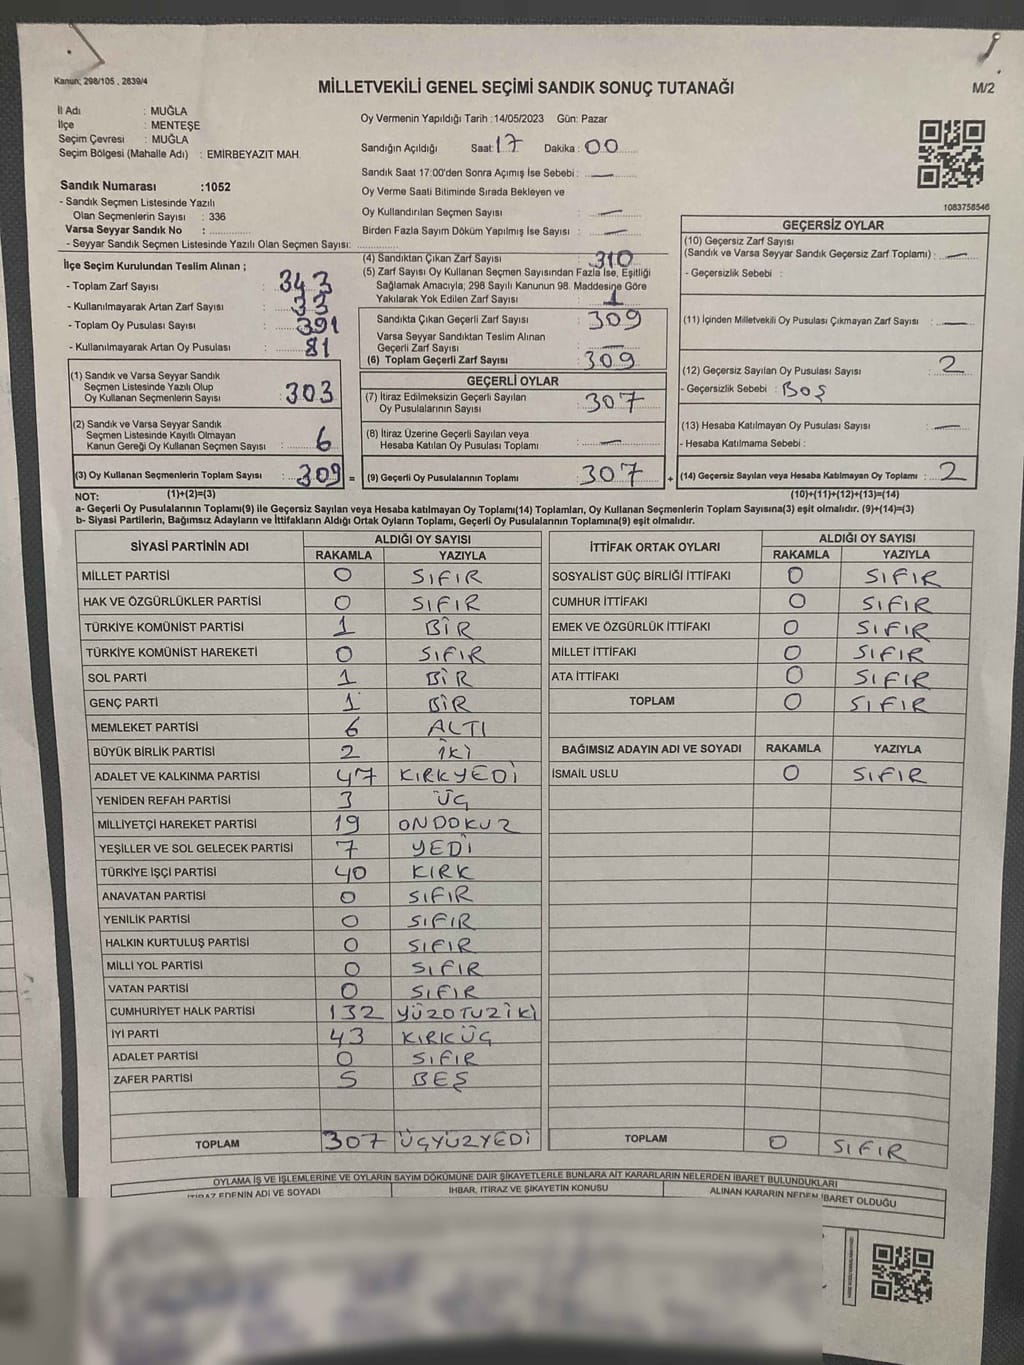 Kanun; 298/105 , 2839/4
MİLLETVEKİLİ GENEL SEÇİMİ SANDIK SONUÇ TUTANAĞI
M/2
İl Adı : MUĞLA
İlçe : MENTEŞE
Seçim Çevresi : MUĞLA
Seçim Bölgesi (Mahalle Adı) : EMİRBEYAZIT MAH.
Sandık Numarası :1052
- Sandık Seçmen Listesinde Yazılı
Olan Seçmenlerin Sayısı : 336
Varsa Seyyar Sandık No :
- Seyyar Sandık Seçmen Listesinde Yazılı Olan Seçmen Sayısı:
Oy Vermenin Yapıldığı Tarih :14/05/2023 Gün: Pazar
Sandığın Açıldığı Saat: 17 Dakika : 00
Sandık Saat 17:00'den Sonra Açımış İse Sebebi : —
Oy Verme Saati Bitiminde Sırada Bekleyen ve
Oy Kullandırılan Seçmen Sayısı —
Birden Fazla Sayım Döküm Yapılmış İse Sayısı : —
1083758546
İlçe Seçim Kurulundan Teslim Alınan ;
- Toplam Zarf Sayısı : 343
- Kullanılmayarak Artan Zarf Sayısı : 33
- Toplam Oy Pusulası Sayısı : 391
- Kullanılmayarak Artan Oy Pusulası : 81
(1) Sandık ve Varsa Seyyar Sandık
Seçmen Listesinde Yazılı Olup
Oy Kullanan Seçmenlerin Sayısı : 303
(2) Sandık ve Varsa Seyyar Sandık
Seçmen Listesinde Kayıtlı Olmayan
Kanun Gereği Oy Kullanan Seçmen Sayısı : 6
(3) Oy Kullanan Seçmenlerin Toplam Sayısı : 309 =
(4) Sandıktan Çıkan Zarf Sayısı : 310
(5) Zarf Sayısı Oy Kullanan Seçmen Sayısından Fazla İse, Eşitliği
Sağlamak Amacıyla; 298 Sayılı Kanunun 98. Maddesine Göre
Yakılarak Yok Edilen Zarf Sayısı : 1
Sandıkta Çıkan Geçerli Zarf Sayısı : 309
Varsa Seyyar Sandıktan Teslim Alınan
Geçerli Zarf Sayısı : —
(6) Toplam Geçerli Zarf Sayısı : 309
GEÇERLİ OYLAR
(7) İtiraz Edilmeksizin Geçerli Sayılan
Oy Pusulalarının Sayısı : 307
(8) İtiraz Üzerine Geçerli Sayılan veya
Hesaba Katılan Oy Pusulası Toplamı : —
(9) Geçerli Oy Pusulalarının Toplamı : 307 +
GEÇERSİZ OYLAR
(10) Geçersiz Zarf Sayısı
(Sandık ve Varsa Seyyar Sandık Geçersiz Zarf Toplamı) : —
- Geçersizlik Sebebi :
(11) İçinden Milletvekili Oy Pusulası Çıkmayan Zarf Sayısı : —
(12) Geçersiz Sayılan Oy Pusulası Sayısı : 2
- Geçersizlik Sebebi : BOŞ
(13) Hesaba Katılmayan Oy Pusulası Sayısı : —
- Hesaba Katılmama Sebebi :
(14) Geçersiz Sayılan veya Hesaba Katılmayan Oy Toplamı : 2
NOT: (1)+(2)=(3) (10)+(11)+(12)+(13)=(14)
a- Geçerli Oy Pusulaların Toplamı(9) ile Geçersiz Sayılan veya Hesaba katılmayan Oy Toplamı(14) Toplamları, Oy Kullanan Seçmenlerin Toplam Sayısına(3) eşit olmalıdır. (9)+(14)=(3)
b- Siyasi Partilerin, Bağımsız Adayların ve İttifakların Aldığı Ortak Oyların Toplamı, Geçerli Oy Pusulalarının Toplamına(9) eşit olmalıdır.
SİYASİ PARTİNİN ADI ALDIĞI OY SAYISI
RAKAMLA YAZIYLA
MİLLET PARTİSİ 0 SIFIR
HAK VE ÖZGÜRLÜKLER PARTİSİ 0 SIFIR
TÜRKİYE KOMÜNİST PARTİSİ 1 BİR
TÜRKİYE KOMÜNİST HAREKETİ 0 SIFIR
SOL PARTİ 1 BİR
GENÇ PARTİ 1 BİR
MEMLEKET PARTİSİ 6 ALTI
BÜYÜK BİRLİK PARTİSİ 2 İKİ
ADALET VE KALKINMA PARTİSİ 47 KIRKYEDİ
YENİDEN REFAH PARTİSİ 3 ÜÇ
MİLLİYETÇİ HAREKET PARTİSİ 19 ONDOKUZ
YEŞİLLER VE SOL GELECEK PARTİSİ 7 YEDİ
TÜRKİYE İŞÇİ PARTİSİ 40 KIRK
ANAVATAN PARTİSİ 0 SIFIR
YENİLİK PARTİSİ 0 SIFIR
HALKIN KURTULUŞ PARTİSİ 0 SIFIR
MİLLİ YOL PARTİSİ 0 SIFIR
VATAN PARTİSİ 0 SIFIR
CUMHURİYET HALK PARTİSİ 132 YÜZOTUZİKİ
İYİ PARTİ 43 KIRKÜÇ
ADALET PARTİSİ 0 SIFIR
ZAFER PARTİSİ 5 BEŞ
TOPLAM 307 ÜÇYÜZYEDİ
İTTİFAK ORTAK OYLARI ALDIĞI OY SAYISI
RAKAMLA YAZIYLA
SOSYALİST GÜÇ BİRLİĞİ İTTİFAKI 0 SIFIR
CUMHUR İTTİFAKI 0 SIFIR
EMEK VE ÖZGÜRLÜK İTTİFAKI 0 SIFIR
MİLLET İTTİFAKI 0 SIFIR
ATA İTTİFAKI 0 SIFIR
TOPLAM 0 SIFIR
BAĞIMSIZ ADAYIN ADI VE SOYADI RAKAMLA YAZIYLA
İSMAİL USLU 0 SIFIR
TOPLAM 0 SIFIR
OYLAMA İŞ VE İŞLEMLERİNE VE OYLARIN SAYIM DÖKÜMÜNE DAİR ŞİKAYETLERLE BUNLARA AİT KARARLARIN NELERDEN İBARET BULUNDUKLARI
İTİRAZ EDENİN ADI VE SOYADI İHBAR, İTİRAZ VE ŞİKAYETİN KONUSU ALINAN KARARIN NEDEN İBARET OLDUĞU